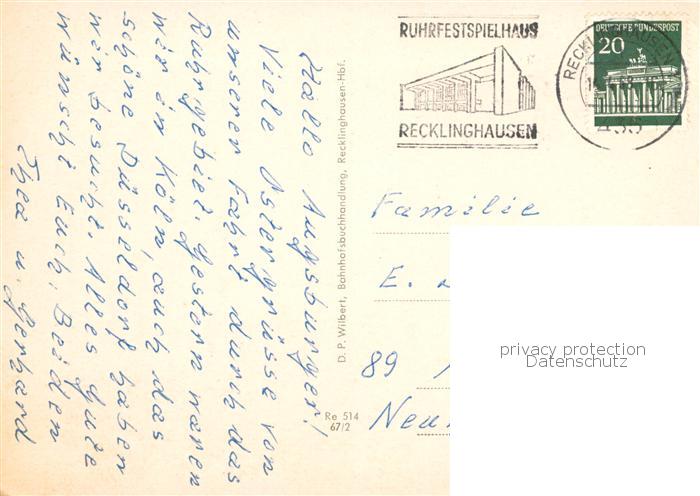 Hallo Augsburger!
Viele Ostergrüsse von
unserer Fahrt durch das
Ruhrgebiet. Gestern waren
wir in Köln, auch das
schöne Düsseldorf haben
wir besucht. Alles Gute
wünscht Euch Beiden
Thea u. Gerhard
D. P. Wilbert, Bahnhofsbuchhandlung, Recklinghausen-Hbf.
Re 514
67/2
RUHRFESTSPIELHAUS
RECKLINGHAUSEN
DEUTSCHE BUNDESPOST
20
RECKLINGHAUSEN
435
Familie
E.
89
Neu
privacy protection
Datenschutz